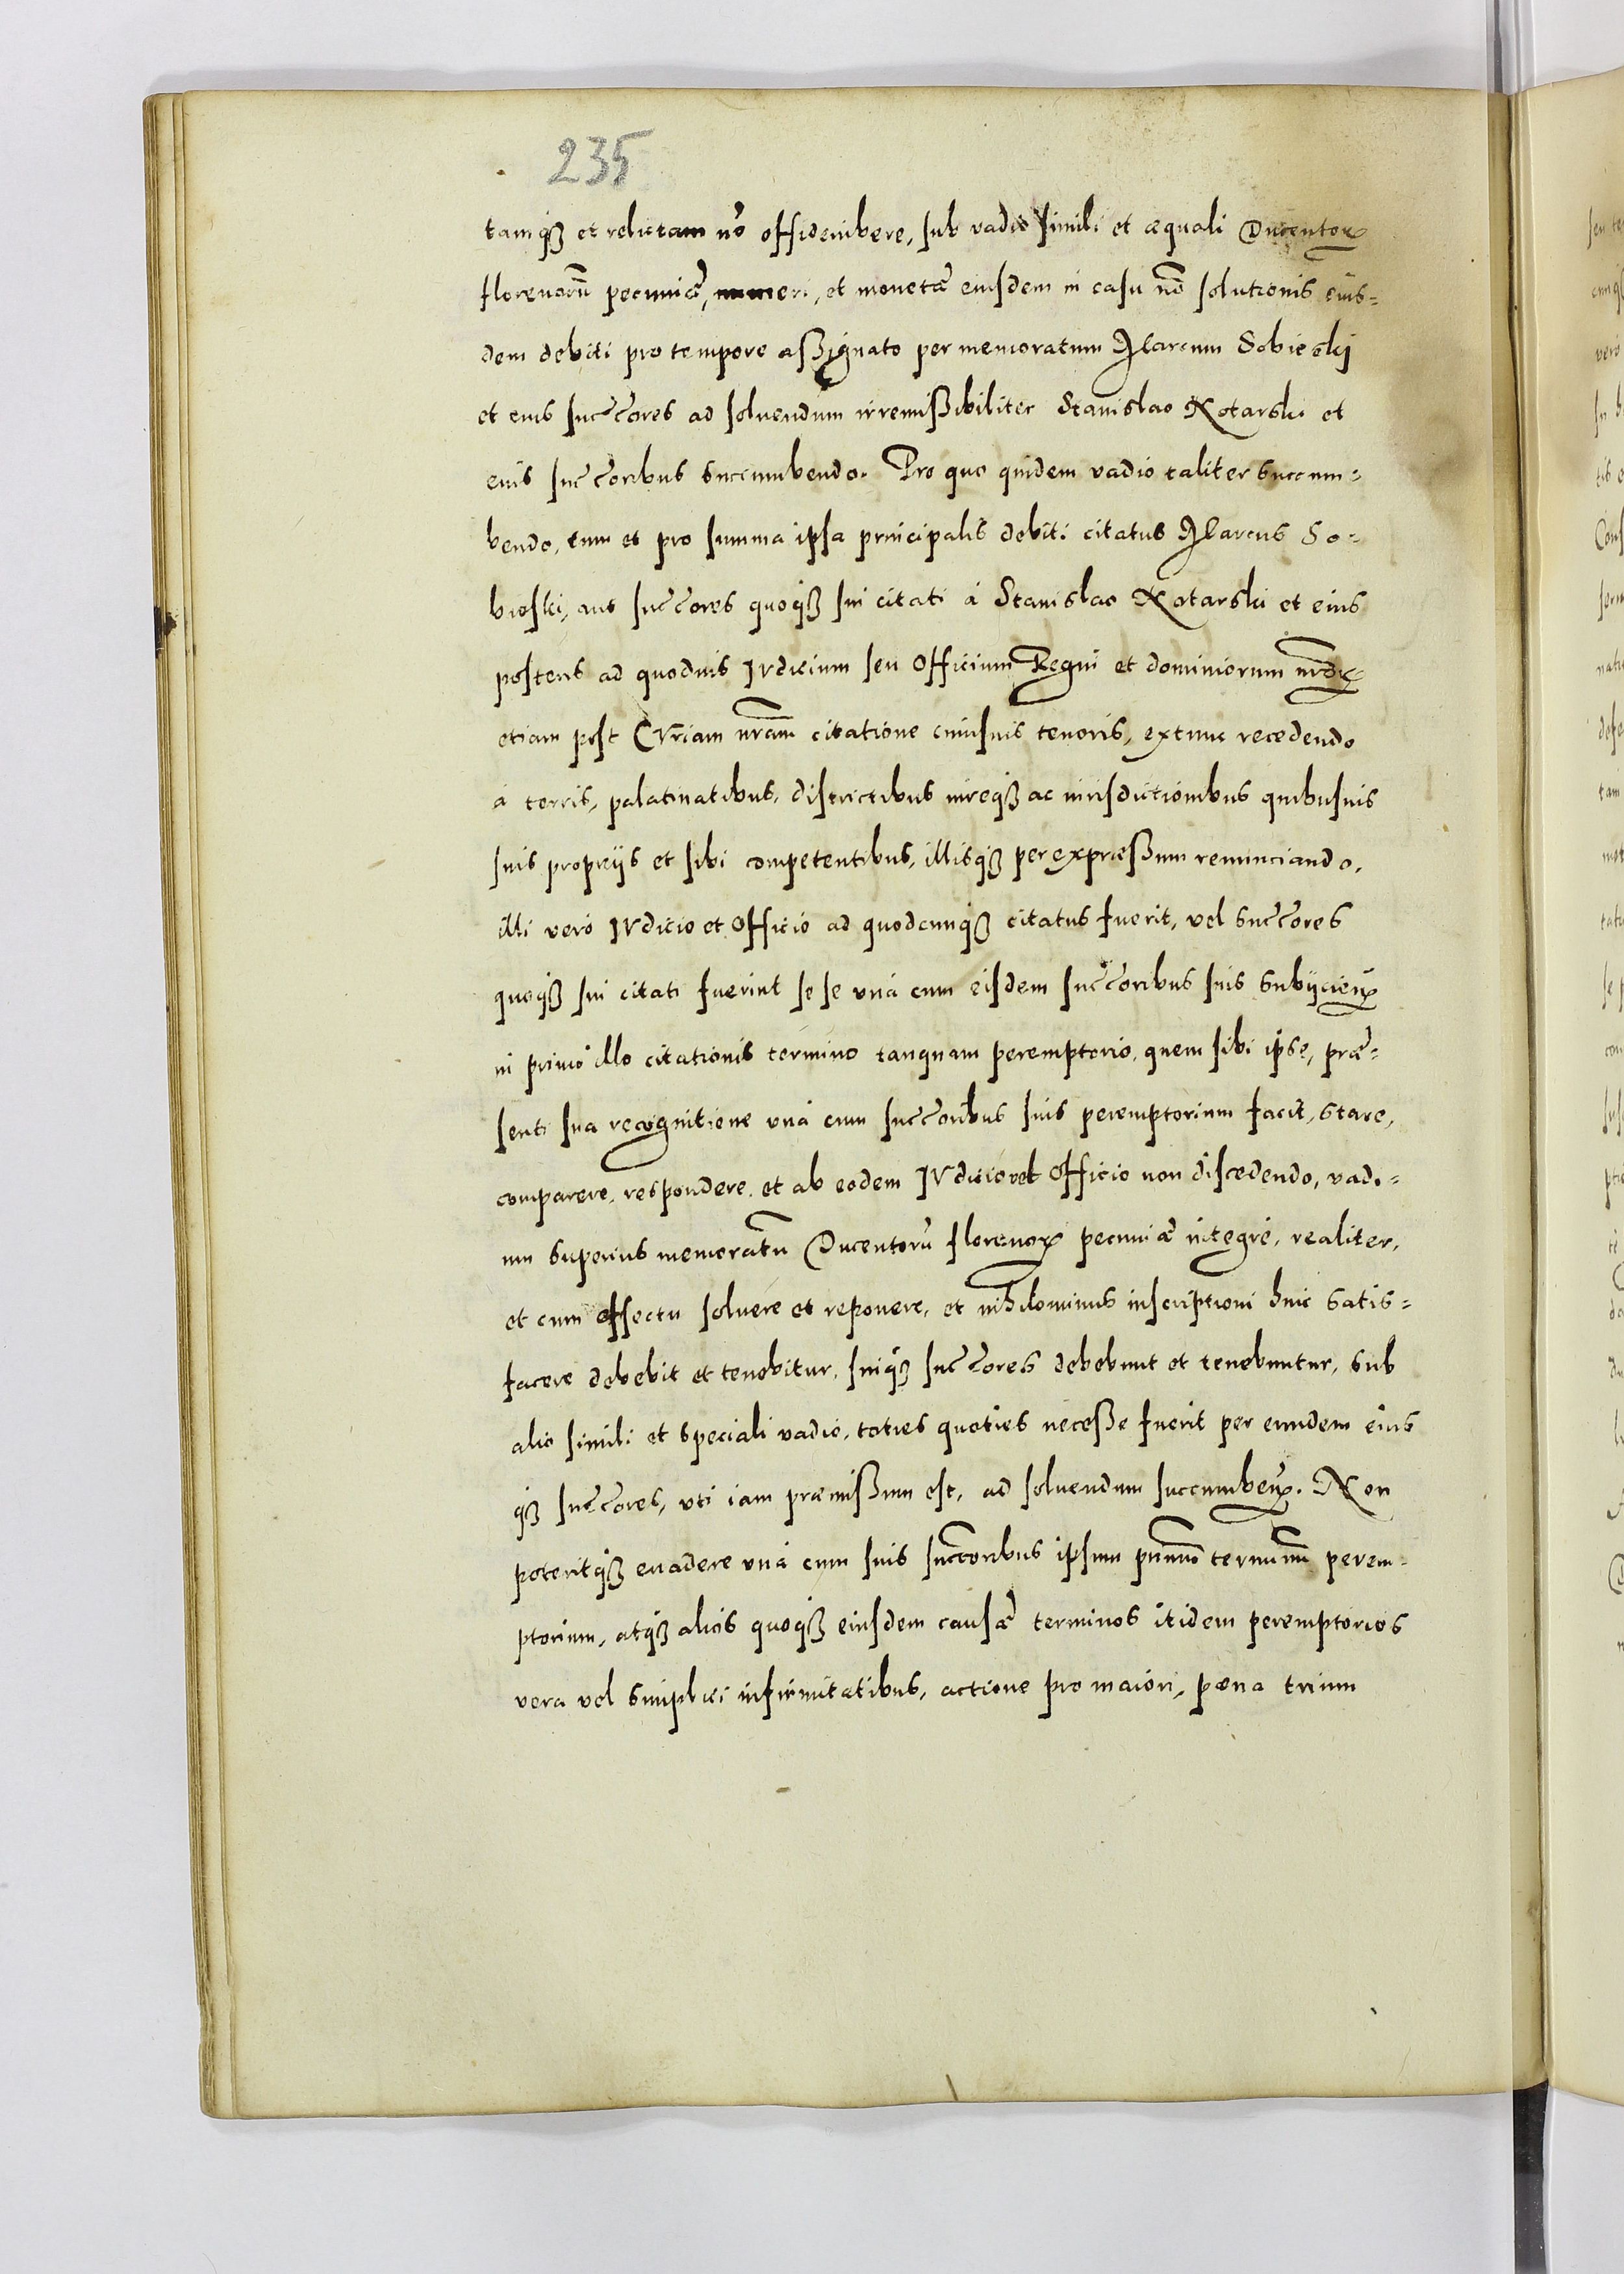 235
tamqȝ et relictam nō offidemibere, sub vadio simili et æquali Ducentoꝝ
florenorū pecuniæ, numeri, et monetæ eiusdem in casu nō solutionis eius-
dem debiti pro tempore aßignato per memoratum Marcum Sobieskj
et eius succ̄ores ad soluendum irremißibiliter Stanislao Notarski et
eius succ̄oribus succumbendo. Pro quo quidem vadio taliter succum-
bendo, tum et pro summa ipsa principalis debiti citatus Marcus So-
bioski, aut succ̄ores quoqȝ sui citati à Stanislao Notarski et eius
posteris ad quoduis Iudicium seu Officium Regni et dominiorum nr̄oꝝ
etiam post Curiam nr̄am citatione cuiusuis tenoris, extunc recedendo
à terris, palatinatibus, districtibus iureqȝ ac iurisdictionibus quibusuis
suis proprijs et sibi competentibus, illisqȝ per expræßum renunciando,
illi verò Iudicio et Officio ad quodcunqȝ citatus fuerit, vel succ̄ores
quoqȝ sui citati fuerint se se unà cum eisdem succ̄oribus suis subijcieñ
in primo illo citationis termino tanquam peremptorio, quem sibi ipse, præ-
senti sua recognitione unà cum succ̄oribus suis peremptorium facit, stare,
comparere, respondere, et ab eodem Iudicio vel Officio non discedendo, vadi-
um superius memoratū Ducentorū florenoꝝ pecuniæ integrè, realiter,
et cum effectu soluere et reponere, et nihilominus inscriptioni huic satis-
facere debebit et tenebitur, suiqȝ succ̄ores debebunt et tenebuntur, sub
alio simili et speciali vadio, toties quoties neceße fuerit per eundem eius
qȝ succ̄ores, uti iam præmißum est, ad soluendum succumbeñ. Non
poteritqȝ euadere unà cum suis succ̄oribus ipsum primum terminum perem-
ptorium, atqȝ alios quoqȝ eiusdem causæ terminos itidem peremptorios
vera vel simplici infirmitatibus, actione pro maiori, pœna trium